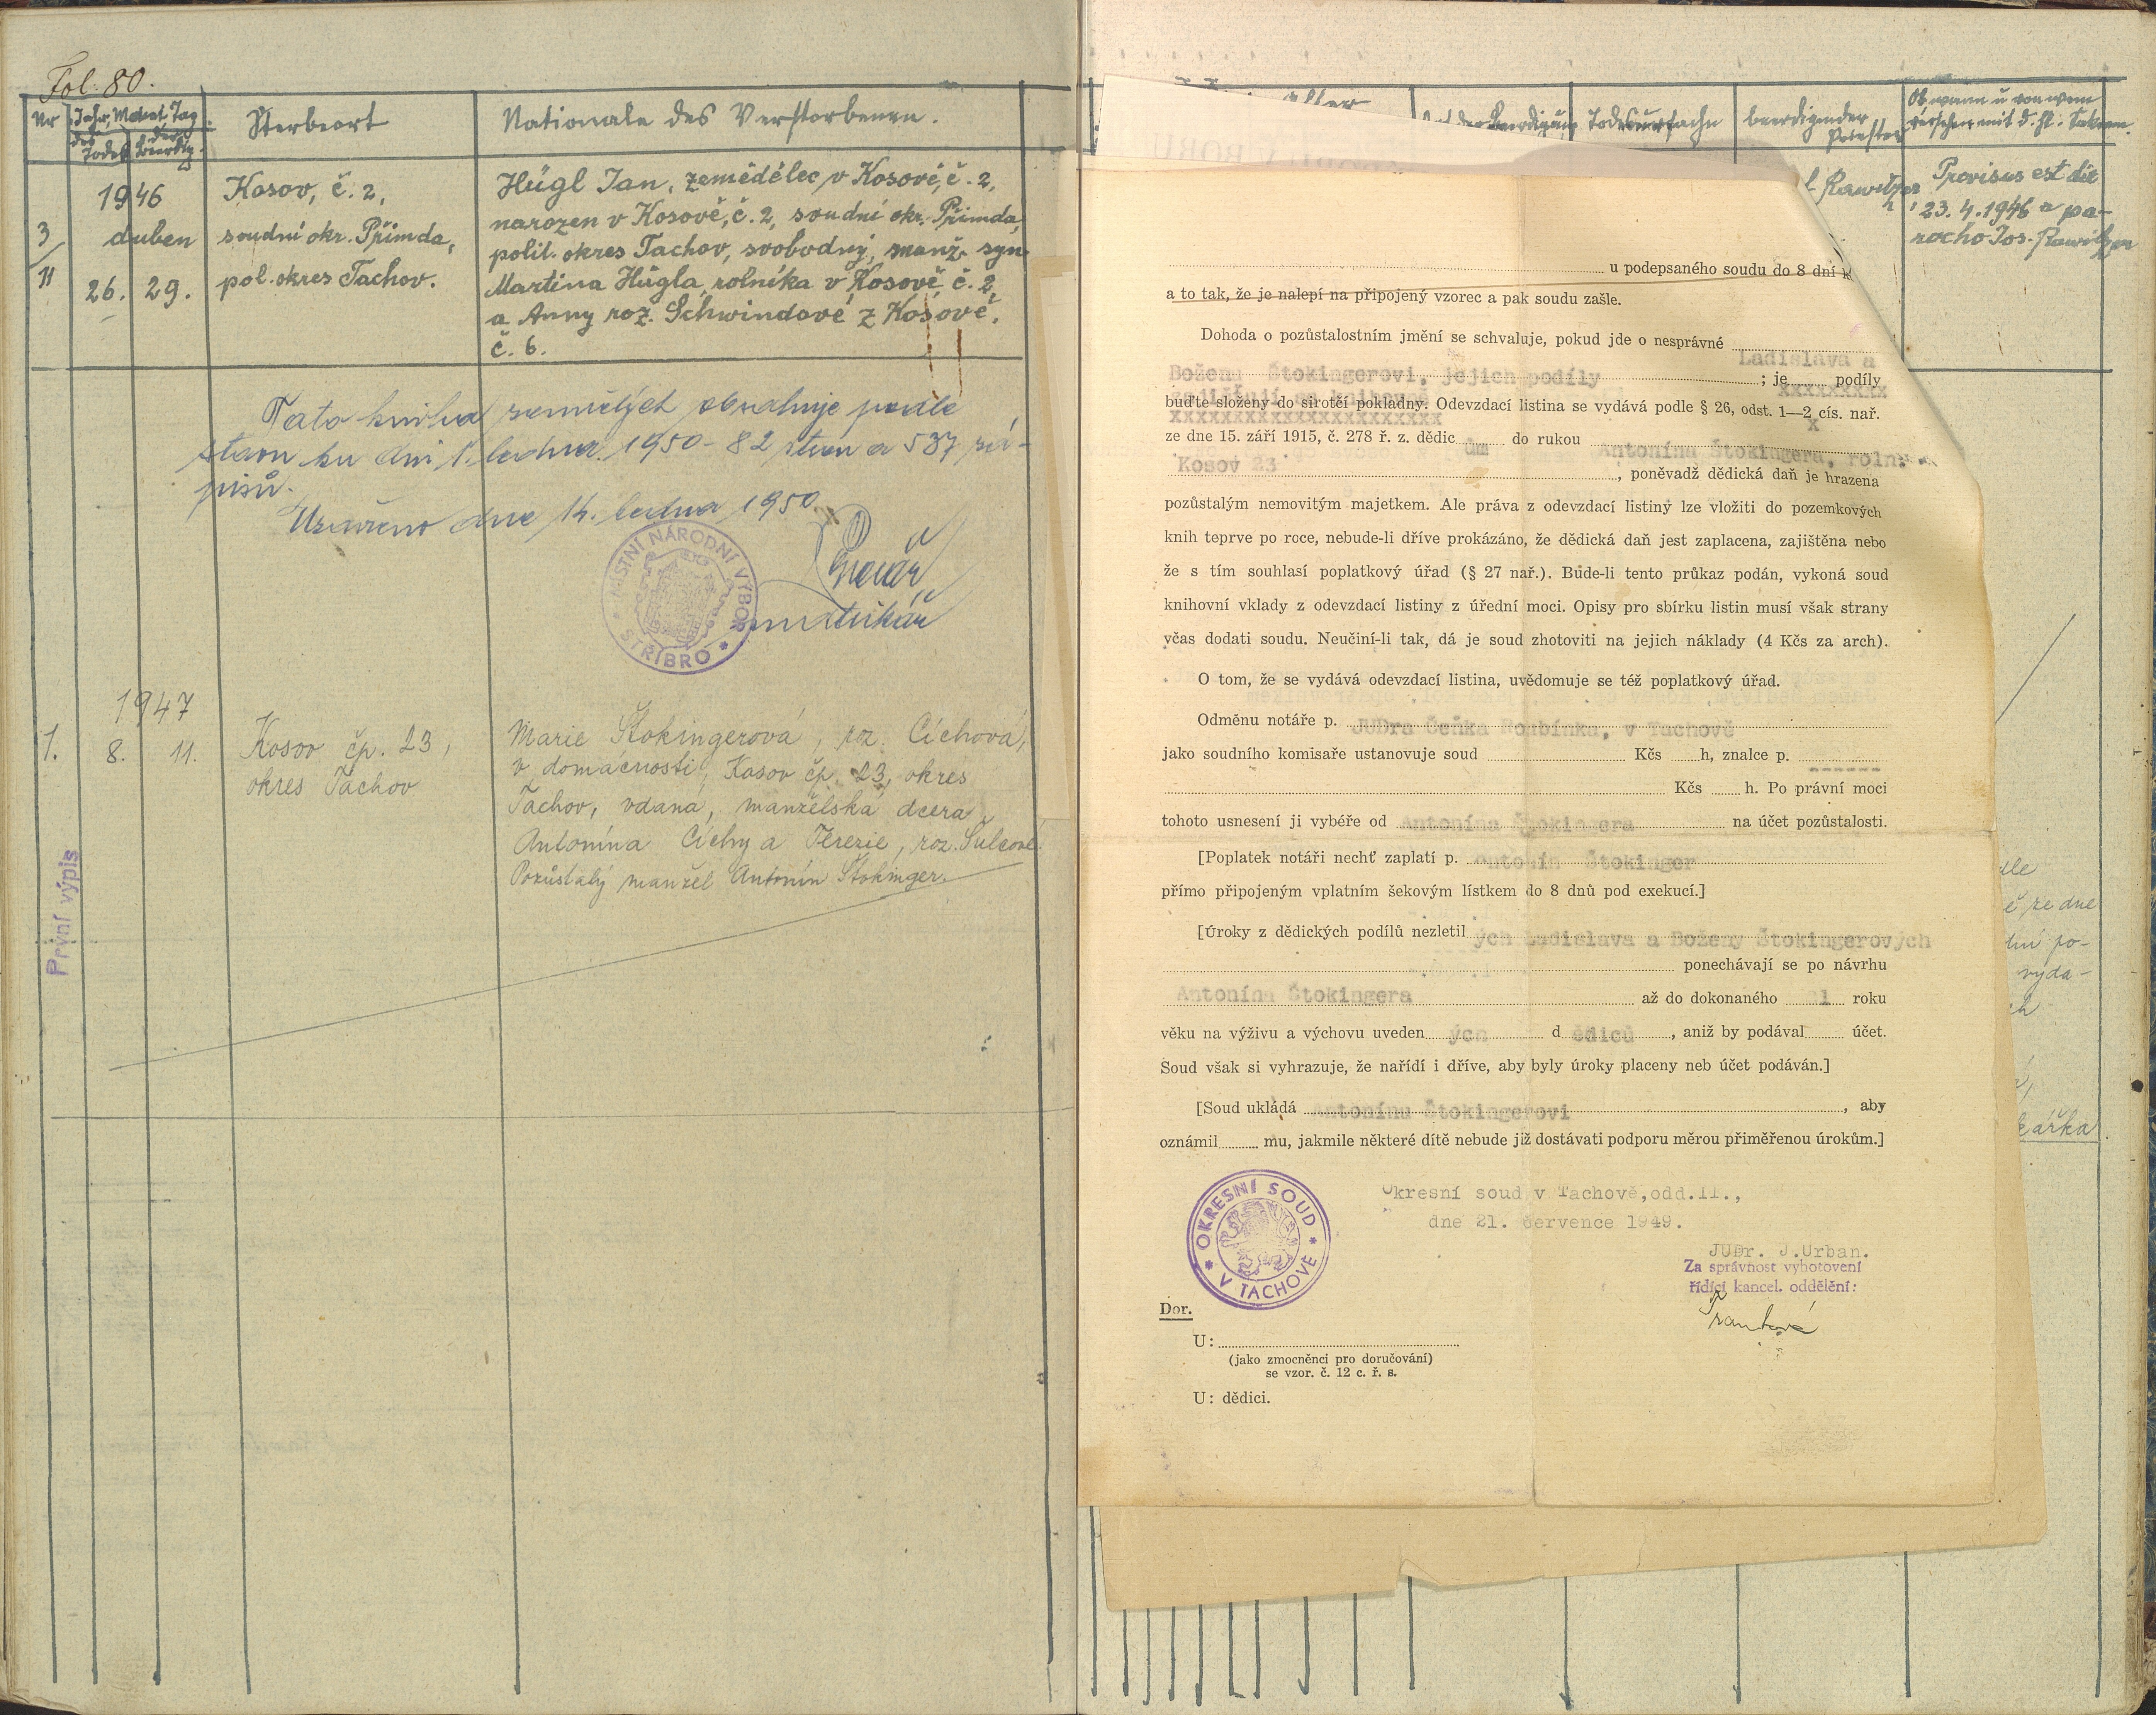 Fol. 80.
Nr
Jahr, Monat, Tag
des Todes
der Beerdig.
Sterbeort
Nationale des Verstorbenen.
1946
duben
3
11
26. 29.
Kosov, č. 2,
soudní okr. Přimda,
pol. okres Tachov.
Hügl Jan, zemědělec v Kosově, č. 2,
narozen v Kosově, č. 2, soudní okr. Přimda,
polit. okres Tachov, svobodný, manž. syn
Martina Hügla, rolníka v Kosově č. 2,
a Anny roz. Schwindové z Kosově,
č. 6.
Tato kniha zemřelých obsahuje podle
stavu ku dni 1. ledna 1950 - 82 stran a 537 zá-
pisů.
Uzavřeno dne 14. ledna 1950.
matrikář
MÍSTNÍ NÁRODNÍ VÝBOR
* STŘÍBRO *
1947
1. 8. 11.
Kosov čp. 23,
okres Tachov
Marie Štokingerová, roz. Cíchová,
v domácnosti, Kosov čp. 23, okres
Tachov, vdaná, manželská dcera
Antonína Cíchy a Terezie, roz. Šulcové.
Pozůstalý manžel Antonín Štokinger.
První výpis
Alter
Todesursache
beerdigender Priester
Ob wann u von wem
versehen mit d. hl. Sakram.
Rawitzer
Provisus est die
23. 4. 1946 a pa-
rocho Jos. Rawitzer
u podepsaného soudu do 8 dní
a to tak, že je nalepí na připojený vzorec a pak soudu zašle.
Dohoda o pozůstalostním jmění se schvaluje, pokud jde o nesprávné
Ladislava a
Boženu Štokingerovi, jejich podíly ; je podíly
buďte složeny do sirotčí pokladny. Odevzdací listina se vydává podle § 26, odst. 1—2 cís. nař.
ze dne 15. září 1915, č. 278 ř. z. dědic ům do rukou Antonína Štokingera, roln.
Kosov 23 , poněvadž dědická daň je hrazena
pozůstalým nemovitým majetkem. Ale práva z odevzdací listiny lze vložiti do pozemkových
knih teprve po roce, nebude-li dříve prokázáno, že dědická daň jest zaplacena, zajištěna nebo
že s tím souhlasí poplatkový úřad (§ 27 nař.). Bude-li tento průkaz podán, vykoná soud
knihovní vklady z odevzdací listiny z úřední moci. Opisy pro sbírku listin musí však strany
včas dodati soudu. Neučiní-li tak, dá je soud zhotoviti na jejich náklady (4 Kčs za arch).
O tom, že se vydává odevzdací listina, uvědomuje se též poplatkový úřad.
Odměnu notáře p. JUDra Čeňka , v Tachově
jako soudního komisaře ustanovuje soud Kčs h, znalce p. ------
Kčs h. Po právní moci
tohoto usnesení ji vybéře od Antonína Štokingera na účet pozůstalosti.
[Poplatek notáři nechť zaplatí p. Antonín Štokinger
přímo připojeným vplatním šekovým lístkem do 8 dnů pod exekucí.]
[Úroky z dědických podílů nezletil ých Ladislava a Boženy Štokingerových
ponechávají se po návrhu
Antonína Štokingera až do dokonaného roku
věku na výživu a výchovu uveden ých d ědiců , aniž by podával účet.
Soud však si vyhrazuje, že nařídí i dříve, aby byly úroky placeny neb účet podáván.]
[Soud ukládá Antonínu Štokingerovi , aby
oznámil mu, jakmile některé dítě nebude již dostávati podporu měrou přiměřenou úrokům.]
* OKRESNÍ SOUD *
V TACHOVĚ
Okresní soud v Tachově,odd.II.,
dne 21. července 1949.
JUDr. J.Urban.
Za správnost vyhotovení
řídící kancel. oddělení:
Dor.
U:
(jako zmocněnci pro doručování)
se vzor. č. 12 c. ř. s.
U: dědici.
ě ze dne
výda-